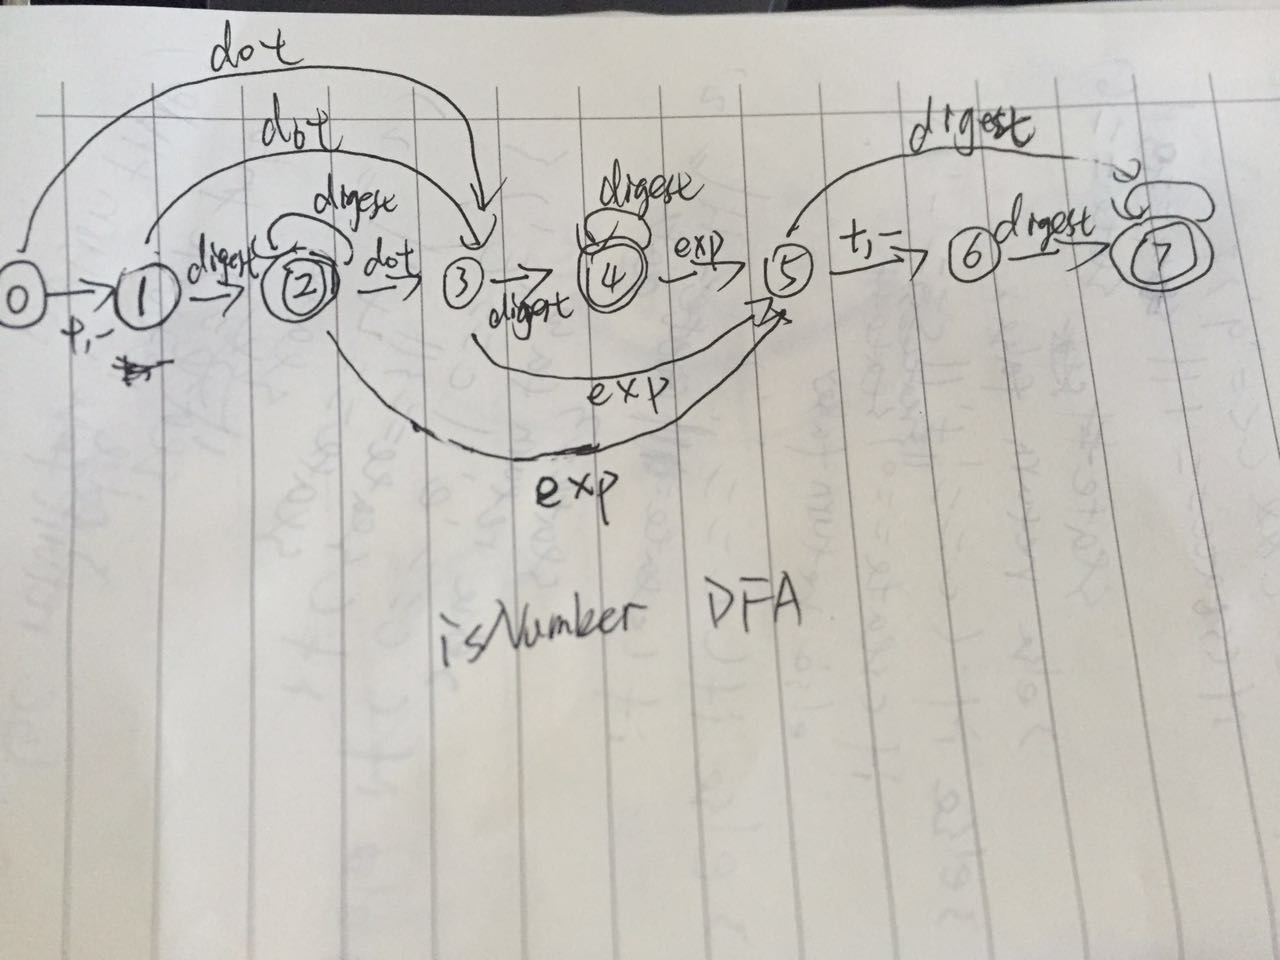 dot
dot
digest
digest
digest
0 +,- 1 digest 2 dot 3 digest 4 exp 5 +,- 6 digest 7
exp
exp
isNumber DFA